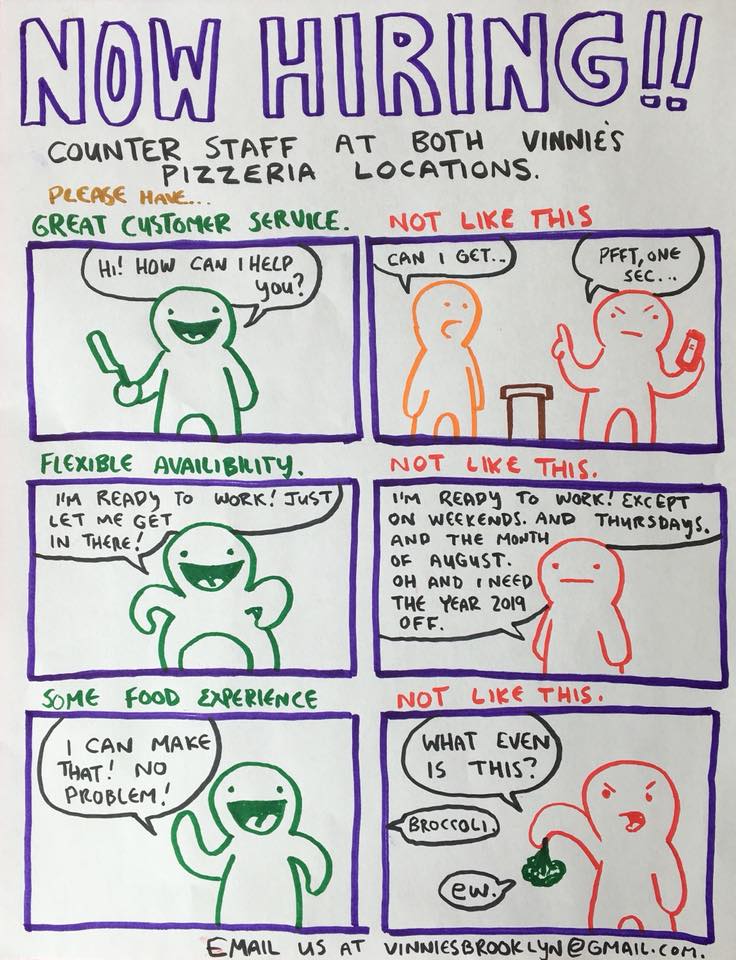 NOW HIRING!!
COUNTER STAFF AT BOTH VINNIE'S
PIZZERIA LOCATIONS.
PLEASE HAVE...
GREAT CUSTOMER SERVICE.
HI! HOW CAN I HELP
you?
NOT LIKE THIS
CAN I GET...
PFFT, ONE
SEC...
FLEXIBLE AVAILIBILITY.
I'M READY TO WORK! JUST
LET ME GET
IN THERE!
NOT LIKE THIS.
I'M READY TO WORK! EXCEPT
ON WEEKENDS. AND THURSDAYS.
AND THE MONTH
OF AUGUST.
OH AND I NEED
THE YEAR 2019
OFF.
SOME FOOD EXPERIENCE
I CAN MAKE
THAT! NO
PROBLEM!
NOT LIKE THIS.
WHAT EVEN
IS THIS?
BROCCOLI.
EW.
EMAIL US AT VINNIESBROOKLYN@GMAIL.COM.